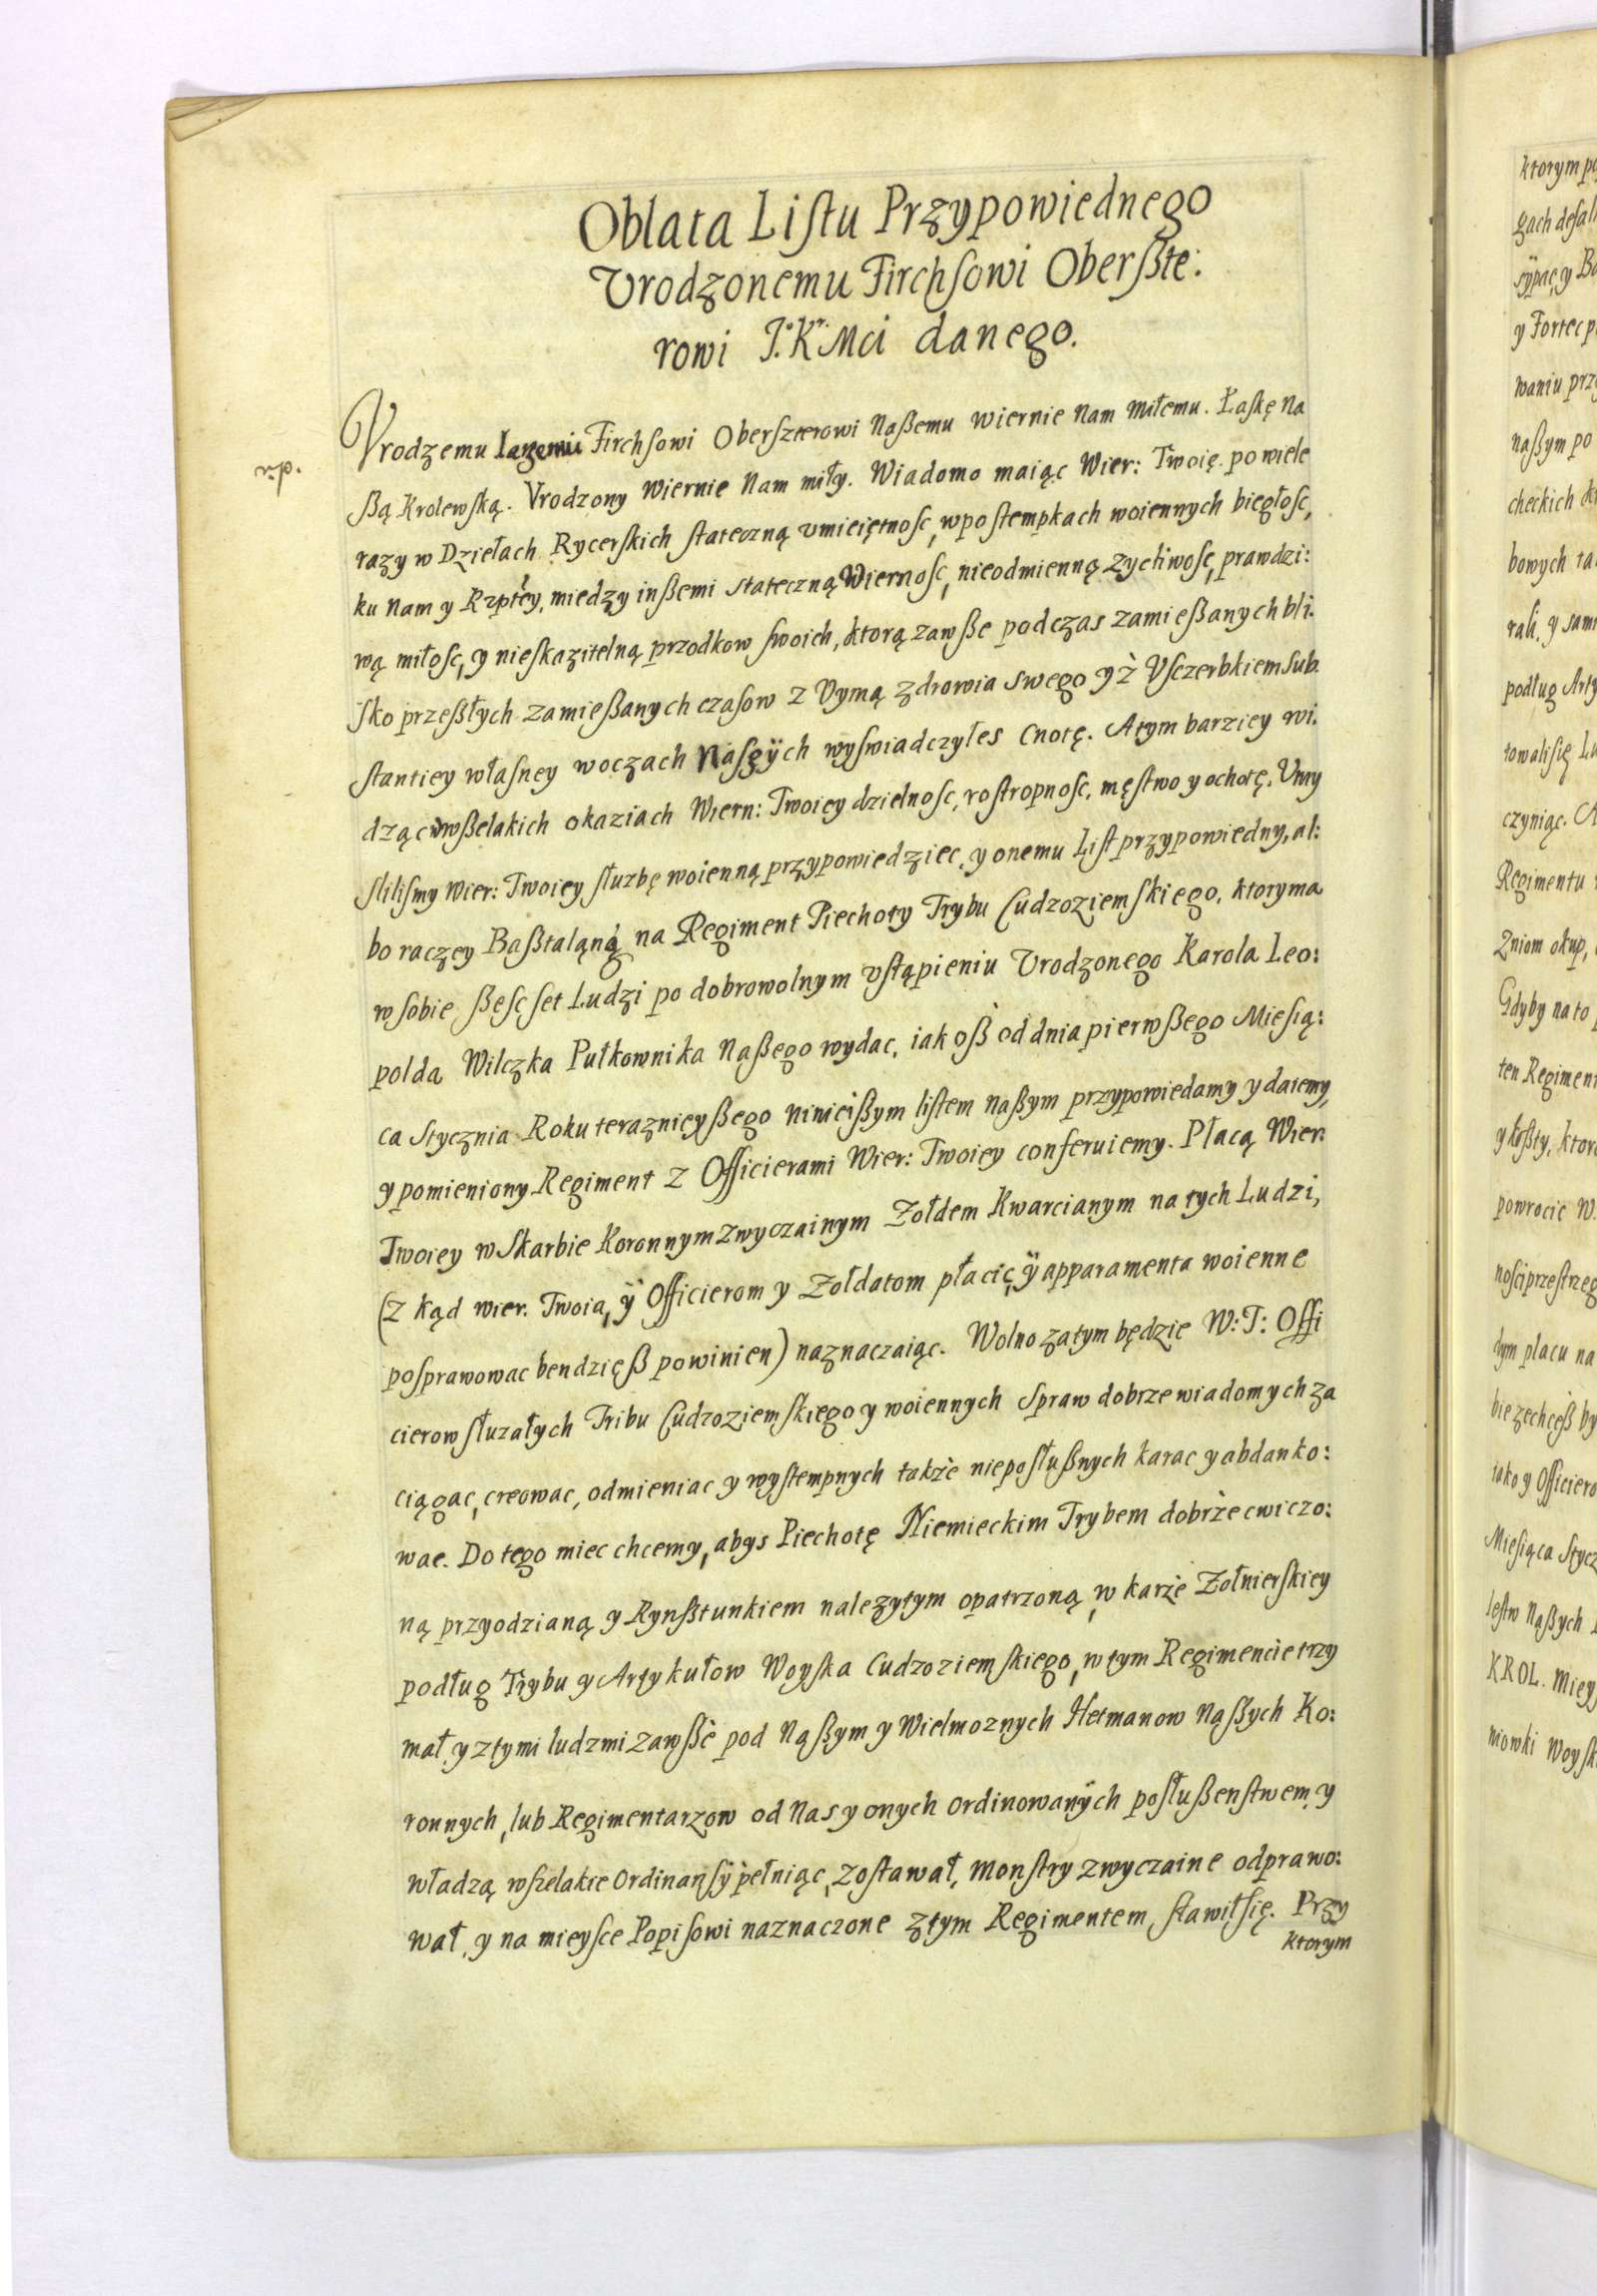 Oblata Listu Przypowiednego
Vrodzonemu Firchsowi Oberßte:
rowi J.K.Mci danego.
Vrodzemu Firchsowi Oberszterowi Naßemu wiernie Nam miłemu. Łaskę Na
ßą Krolewską. Vrodzony Wiernie Nam miły. Wiadomo maiąc Wier: Twoię. po wiele
razy w Dziełach Rycerskich stateczną vmieiętnosc, w postempkach woiennych biegłosc,
ku Nam y Rzptey, miedzy inßemi stateczną Wiernosc, nieodmienną zyczliwosc, prawdzi:
wą miłosc, y nieskazitelną przodkow swoich, ktorą zawße podczas zamießanych bli:
sko przeßłych zamießanych czasow z Vymą zdrowia swego y z Vsczerbkiem sub:
stantiey własney w oczach Naszÿch wyswiadczyłes cnotę. A tym barziey wi:
dząc w wßelakich okaziach Wiern: Twoiey dzielnosc, rostropnosc, męstwo y ochotę. Vmy
slilismy Wier: Twoiey służbę woienną przypowiedziec, y onemu List przypowiedny, al:
bo raczey Baßtaląną na Regiment Piechoty Trybu Cudzoziemskiego, ktory ma
w sobie ßesc set Ludzi po dobrowolnym vstąpieniu Vrodzonego Karola Leo:
polda Wilczka Pułkownika Naßego wydac, iakoß od dnia pierwßego Miesią:
ca Stycznia Roku teraznieyßego ninieißym listem naßym przypowiedamy y daiemy,
y pomieniony Regiment z Officierami Wier: Twoiey conferuiemy. Płacą Wier:
Twoiey w Skarbie Koronnym zwyczainym Zołdem Kwarcianym na tych Ludzi,
(z kąd wier. Twoia, ÿ Officierom y Zołdatom płacic, ÿ apparamenta woienne
posprawowac bendzięß powinien) naznaczaiąc. Wolno zatym będzie W: T: Offi
cierow służałych Tribu Cudzoziemskiego y woiennych spraw dobrze wiadomych za
ciągac, creowac, odmieniac y wystempnych także nieposłußnych karac y abdanko:
wac. Do tego miec chcemy, abys Piechotę Niemieckim Trybem dobrze cwiczo:
ną przyodzianą y Rynßtunkiem należytym opatrzoną, w karze Zołnierskiey
podług Trybu y Artykułow Woyska Cudzoziemskiego, w tym Regimencie trzy
mał, y z tymi ludzmi zawße pod Naßym y Wielmoznych Hetmanow Naßych Ko:
ronnych, lub Regimentarzow od Nas y onych ordinowanÿch posłußenstwem, y
władzą wszelakie ordinansÿ pełniąc, zostawał, monstry zwyczaine odprawo:
wał, y na mieysce Popisowi naznaczone z tym Regimentem stawił się. Przy
ktorym